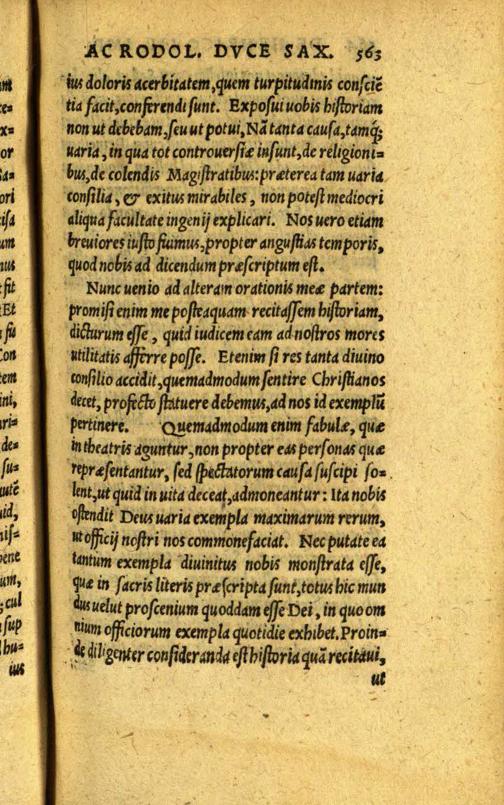 AC RODOL. DVCE SAX. 563
ius doloris acerbitatem, quem turpitudinis consciẽ
tia facit, conferendi sunt. Exposui uobis historiam
non ut debebam, seu ut potui, Nã tanta causa, tamq́;
uaria, in qua tot controuersiæ insunt, de religioni=
bus, de colendis Magistratibus: præterea tam uaria
consilia, & exitus mirabiles, non potest mediocri
aliqua facultate ingenij explicari. Nos uero etiam
breuiores iusto fuimus, propter angustias temporis,
quod nobis ad dicendum præscriptum est.
Nunc uenio ad alteram orationis meæ partem:
promisi enim me posteaquam recitassem historiam,
dicturum esse, quid iudicem eam ad nostros mores
utilitatis afferre posse. Etenim si res tanta diuino
consilio accidit, quemadmodum sentire Christianos
decet, profecto statuere debemus, ad nos id exemplũ
pertinere. Quemadmodum enim fabulæ, quæ
in theatris aguntur, non propter eas personas quæ
repræsentantur, sed spectatorum causa suscipi so=
lent, ut quid in uita deceat, admoneantur: Ita nobis
ostendit Deus uaria exempla maximarum rerum,
ut officij nostri nos commonefaciat. Nec putate ea
tantum exempla diuinitus nobis monstrata esse,
quæ in sacris literis præscripta sunt, totus hic mun
dus uelut proscenium quoddam esse Dei, in quo om
nium officiorum exempla quotidie exhibet. Proin=
de diligenter consideranda est historia quã recitaui,
ut